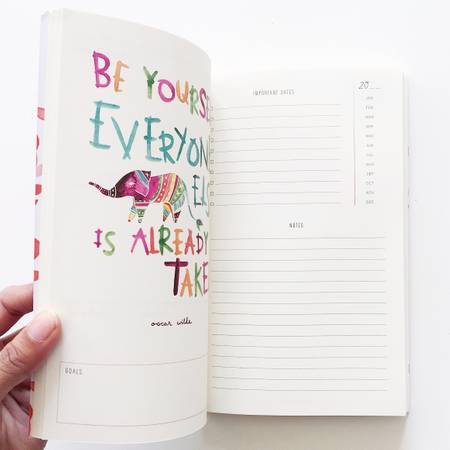 BE YOURS
EVERYON
ELS
IS ALREADY
TAKE
oscar wilde
GOALS
IMPORTANT DATES
20
JAN
FEB
MAR
APR
MAY
JUN
JUL
AUG
SEP
OCT
NOV
DEC
NOTES